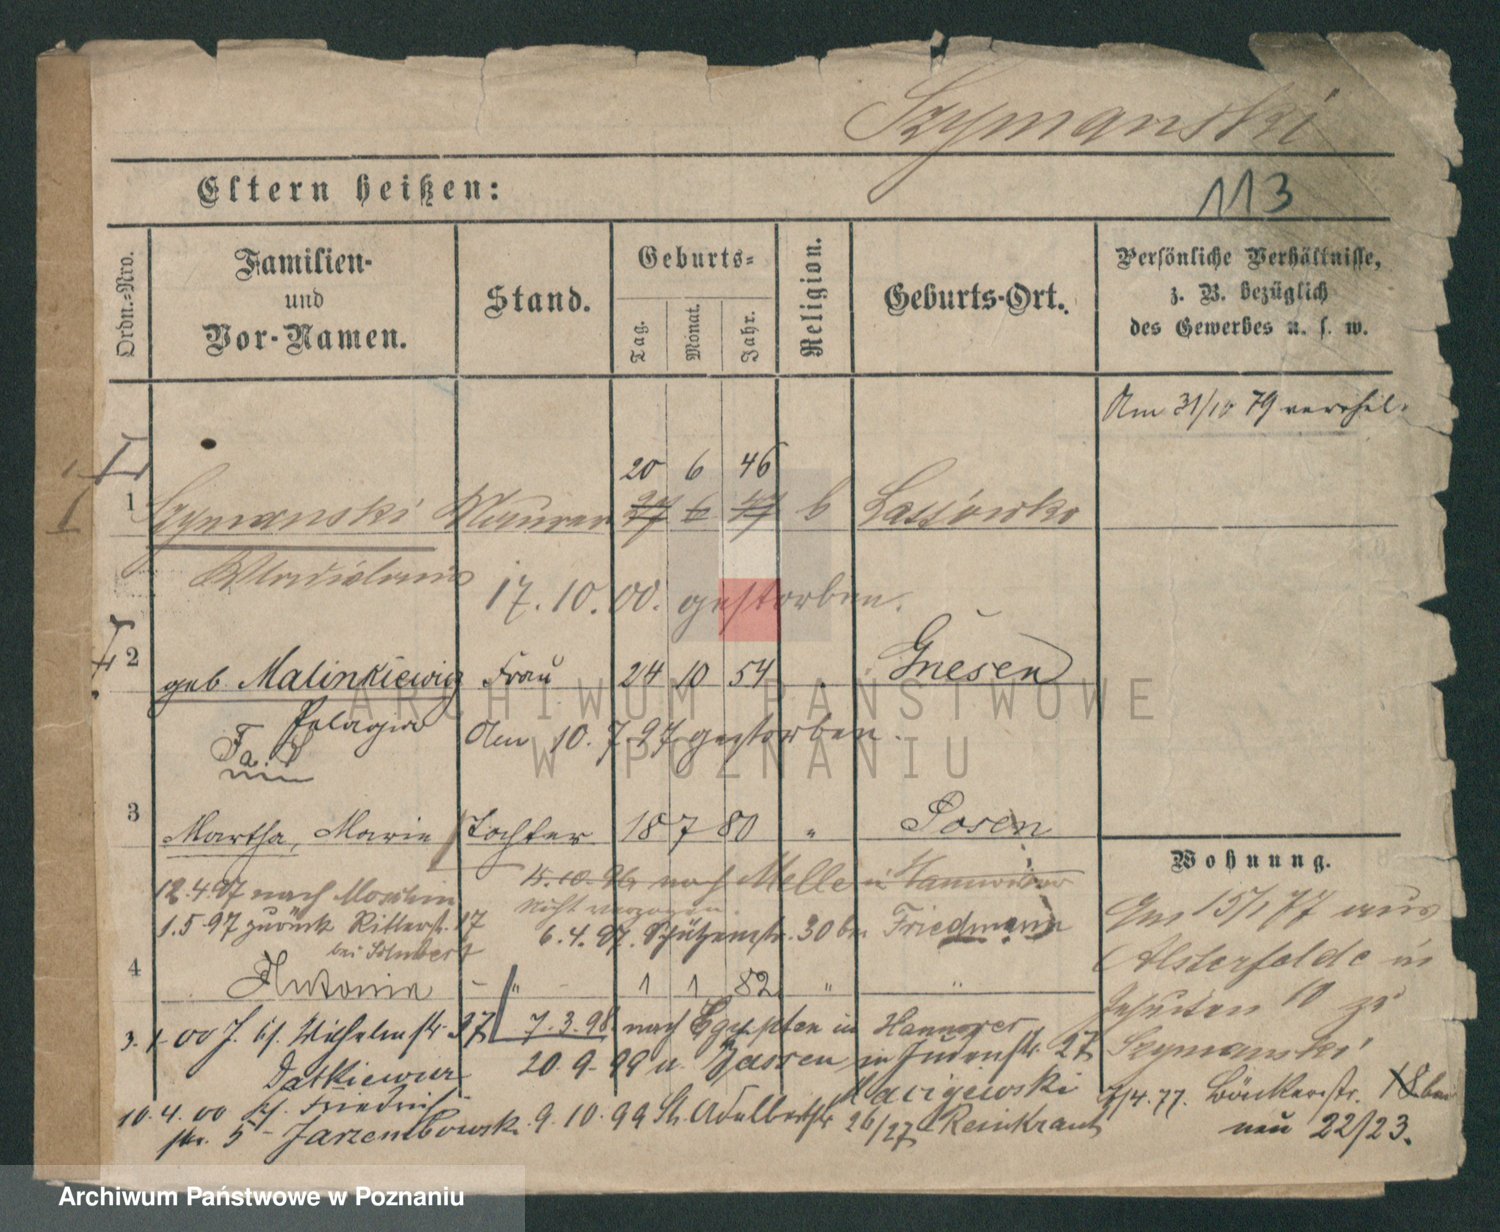 Szymanski
113
Eltern heißen:
Ordn.-Nro.
Familien-
und
Vor-Namen.
Stand.
Geburts-
Tag.
Monat.
Jahr.
Religion.
Geburts-Ort.
Persönliche Verhältnisse,
z. B. bezüglich
des Gewerbes u. s. w.
Am 31/10 79 verehel.
20 6 46
1 Szymanski Maurer 27 6 47 k
Wladislaus
17. 10. 00. gestorben.
2 geb. Malinkiewicz Frau 24 10 54 " Gnesen
Pelagia Am 10. 7. 97 gestorben.
3 Martha, Marie Tochter 18 7 80 " Posen
15. 10. 96 nach Melle in Hannover
nicht verzogen.
12.4.97 nach Moschin
1.5.97 zurück Ritterstr. 17 6. 4. 97. Schützenstr. 30 bei Friedmann
bei Schubert
4 Antonie - " - 1 1 82 " "
3. 1. 00 J. Wilhelmstr. 27 7. 3. 98 nach in Hannover
20. 9. 99 u. 27
10. 4. 00 Friedrich- 9. 10. 99 St. Adalbertstr 26/27
str. 5
Wohnung.
Am 15/1 77 aus
Alsterfelde in
10 zu
Szymanski
7/4. 77. Bäckerstr. 18 bei
neu 22/23.
ARCHIWUM PAŃSTWOWE
W POZNANIU
Archiwum Państwowe w Poznaniu